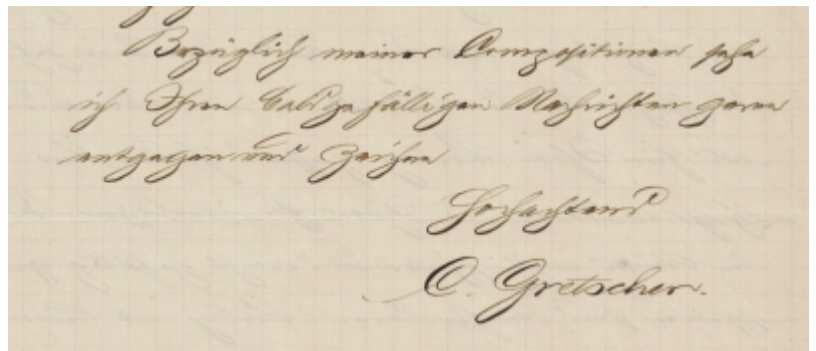 Bezüglich meiner Compositionen sehe
ich Ihren baldgefälligen Nachrichten gerne
entgegen und zeichne
Hochachtend
C. Gretscher.